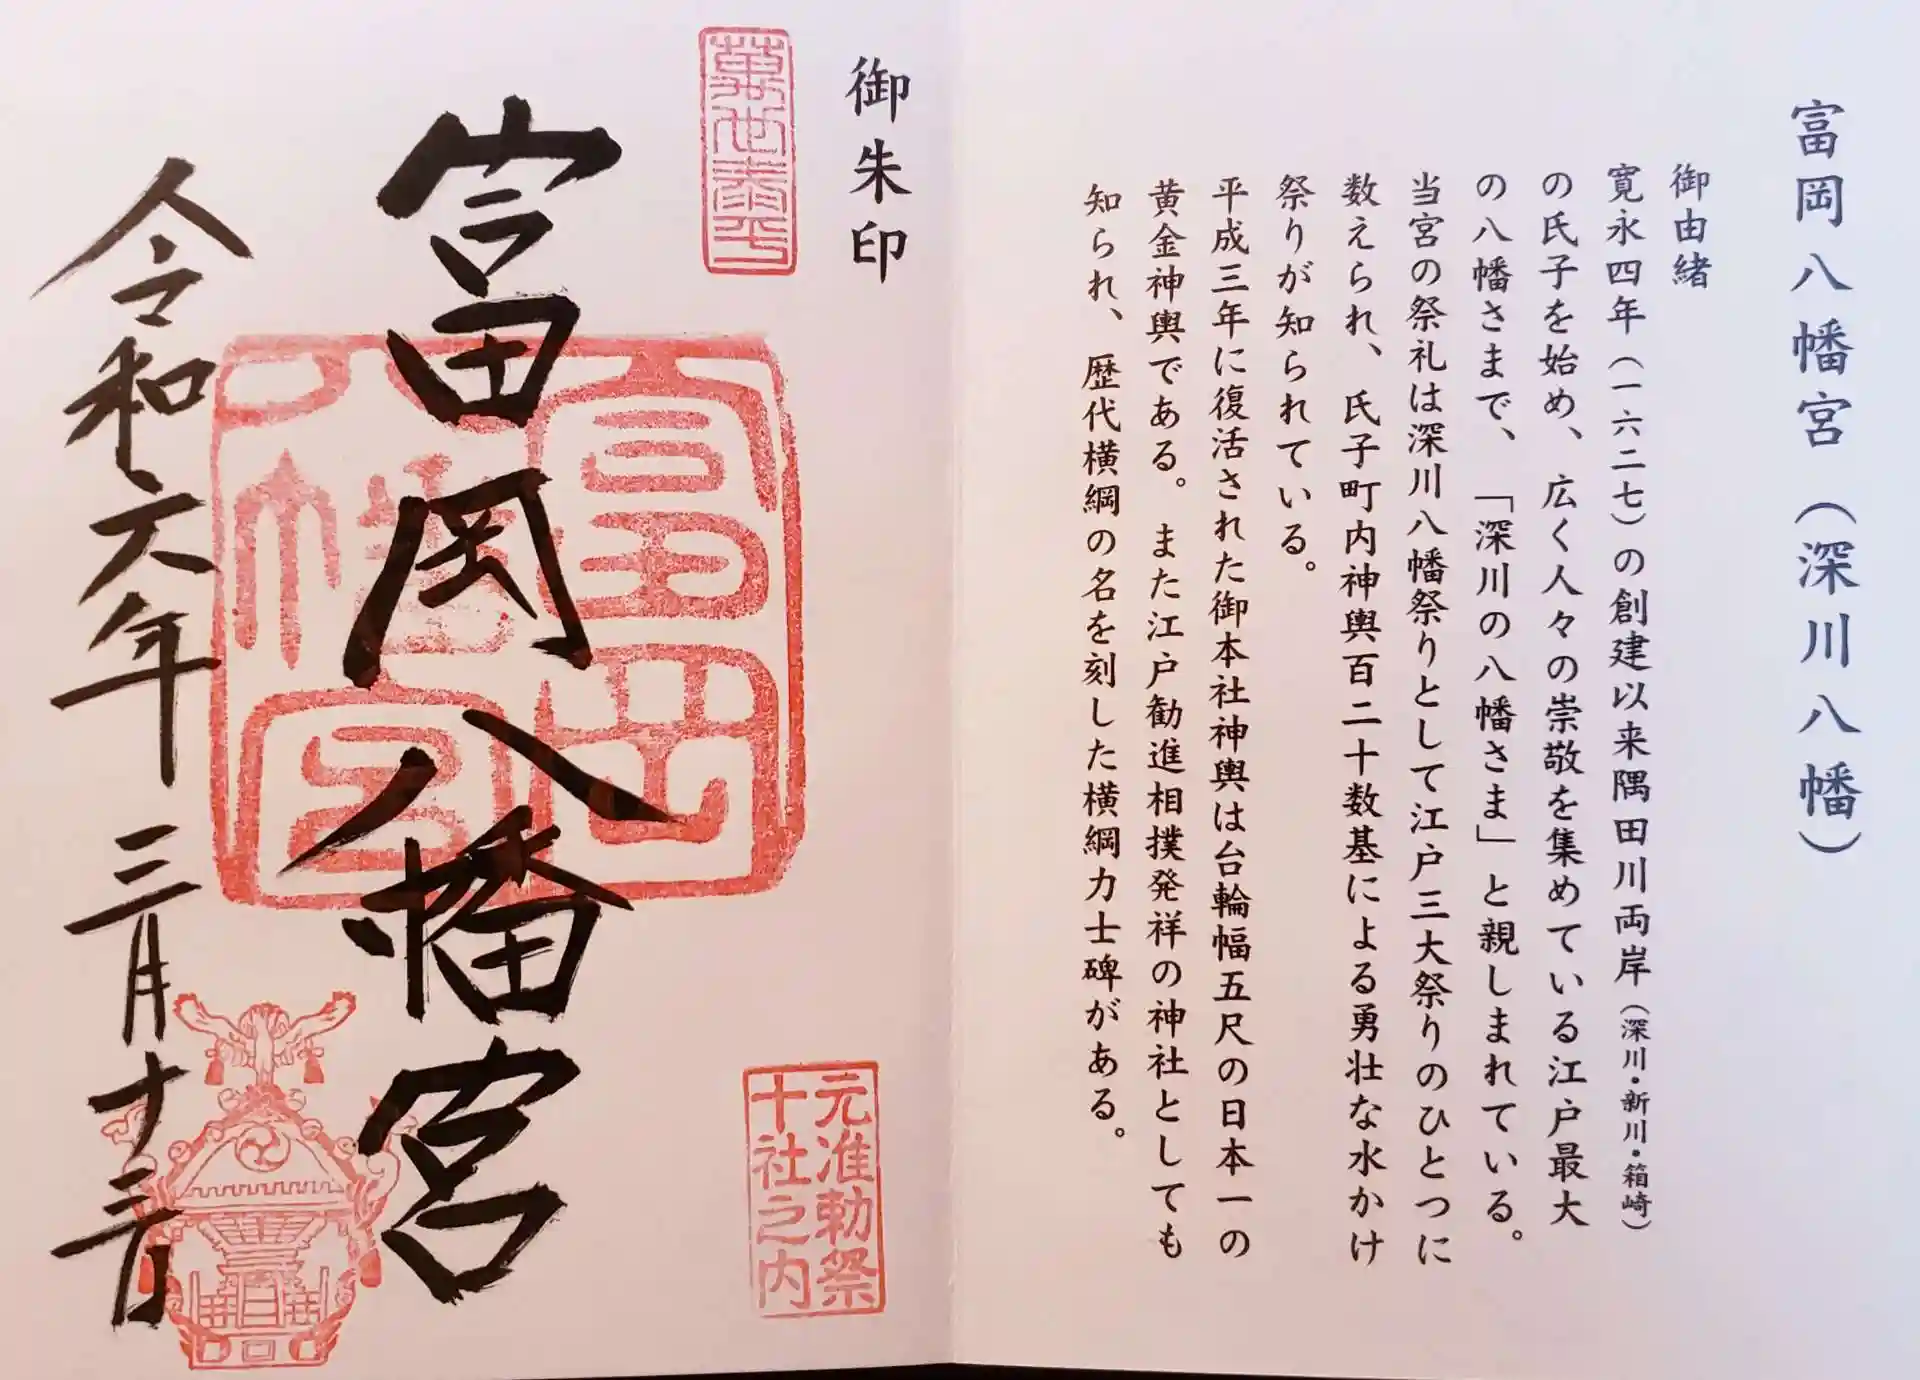 富岡八幡宮（深川八幡）
御由緒
寛永四年（一六二七）の創建以来隅田川両岸（深川・新川・箱崎）
の氏子を始め、広く人々の崇敬を集めている江戸最大
の八幡さまで、「深川の八幡さま」と親しまれている。
当宮の祭礼は深川八幡祭りとして江戸三大祭りのひとつに
数えられ、氏子町内神輿百二十数基による勇壮な水かけ
祭りが知られている。
平成三年に復活された御本社神輿は台輪幅五尺の日本一の
黄金神輿である。また江戸勧進相撲発祥の神社としても
知られ、歴代横綱の名を刻した横綱力士碑がある。
御朱印
萬世泰平
元准勅祭
十社之内
富岡八幡宮
富岡
八幡宮
令和六年三月十三日